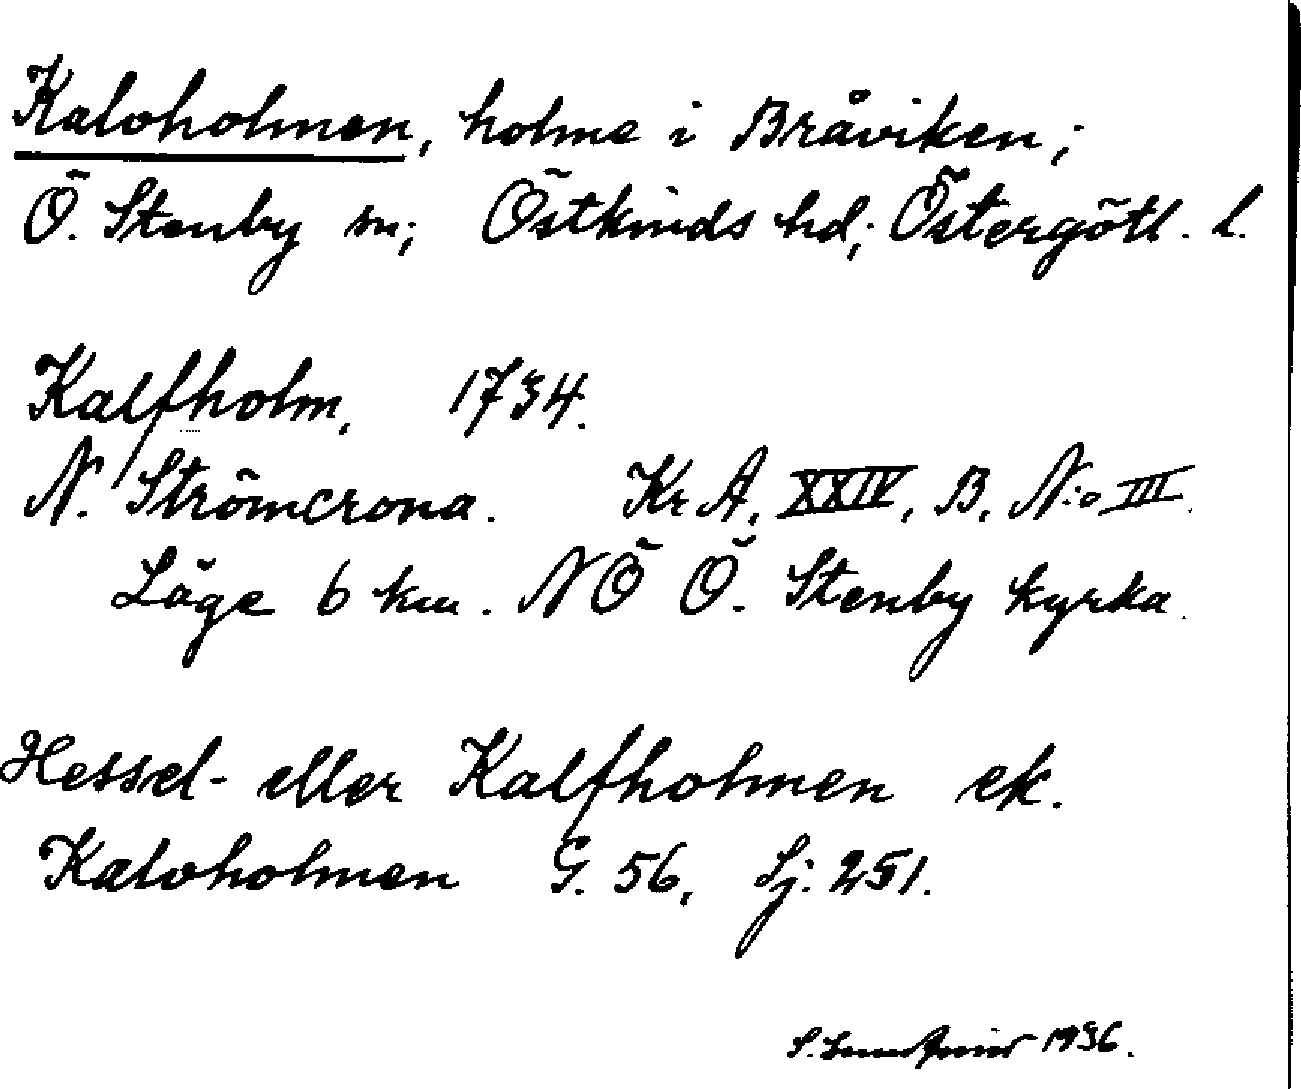 Kalvholmen, holme i Bråviken;
Ö. Stenby sn; Östkinds hd; Östergötl. l.
Kalfholm, 1734.
N. Strömcrona. Kr A, XXIV, B, N:o III.
Läge 6 km. NÖ Ö. Stenby kyrka.
Hessel- eller Kalfholmen ek.
Kalvholmen G. 56, Sj. 251.
S. 1936.